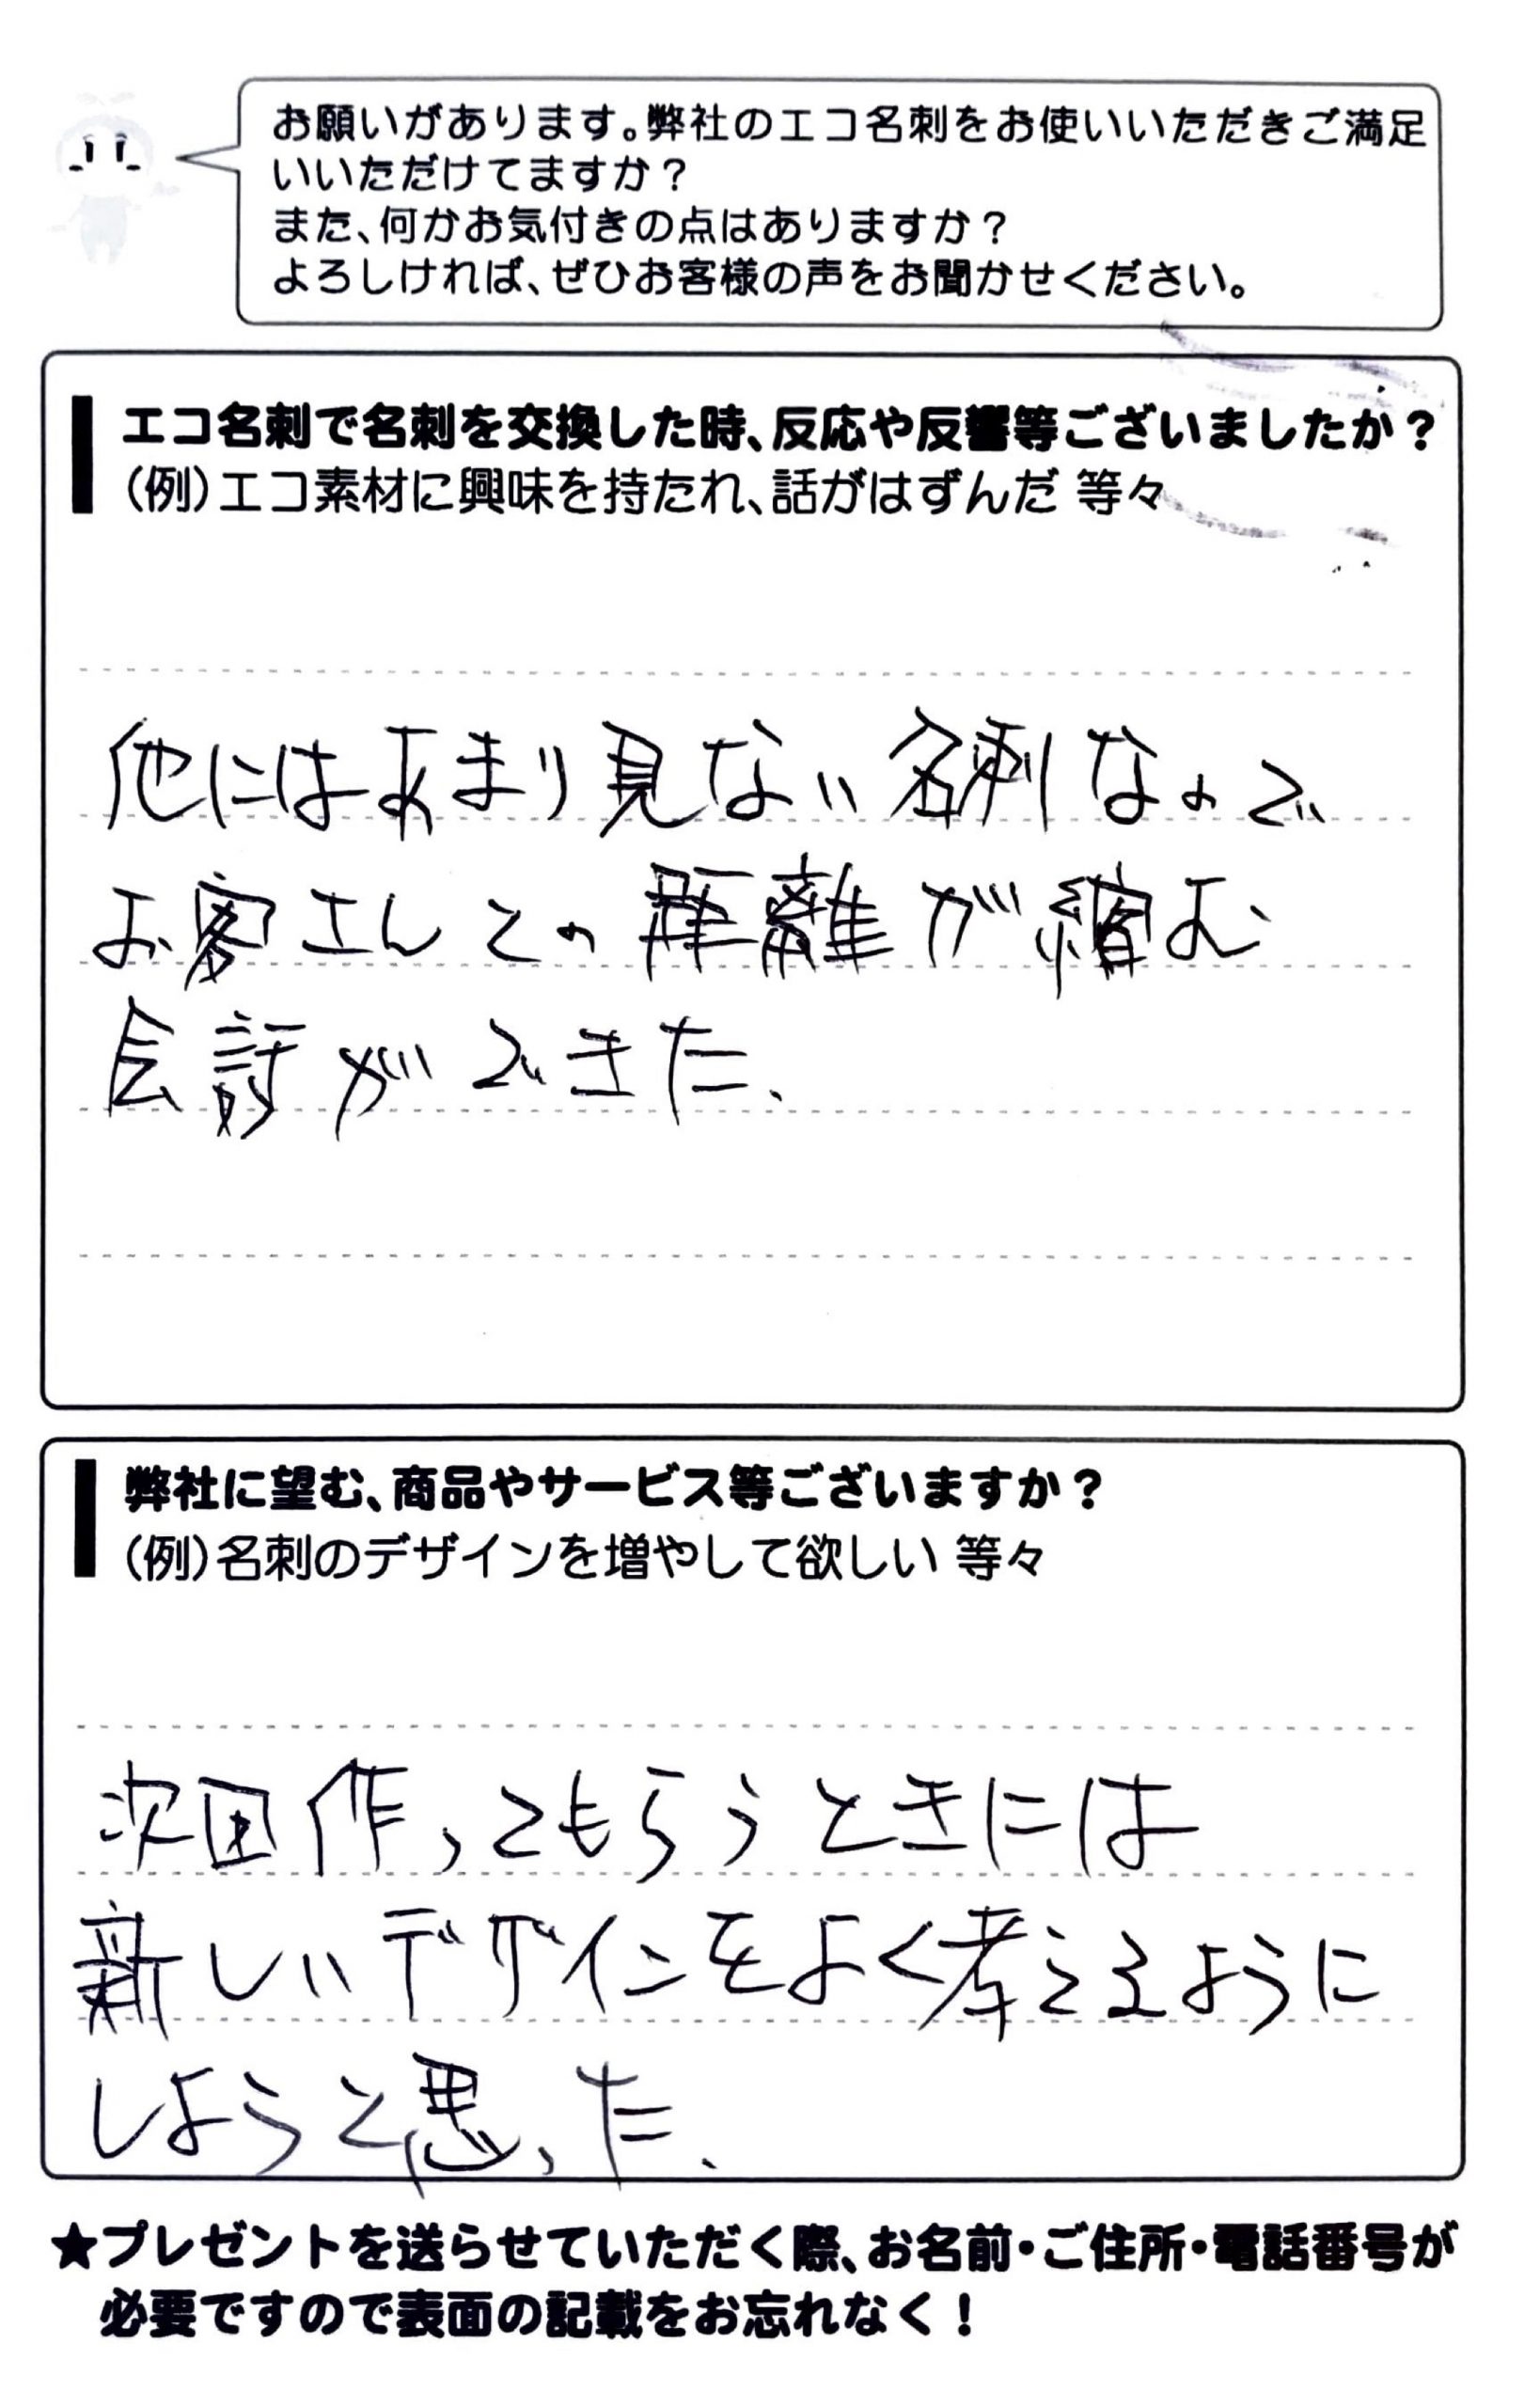 お願いがあります。弊社のエコ名刺をお使いいただきご満足
いいただけてますか？
また、何かお気付きの点はありますか？
よろしければ、ぜひお客様の声をお聞かせください。
エコ名刺で名刺を交換した時、反応や反響等ございましたか？
（例）エコ素材に興味を持たれ、話がはずんだ 等々
他にはあまり見ない名刺なので
お客さんとの距離が縮む
会話ができた、
弊社に望む、商品やサービス等ございますか？
（例）名刺のデザインを増やして欲しい 等々
次回作ってもらうときには
新しいデザインをよく考えるように
しようと思った、
★プレゼントを送らせていただく際、お名前・ご住所・電話番号が
必要ですので表面の記載をお忘れなく！